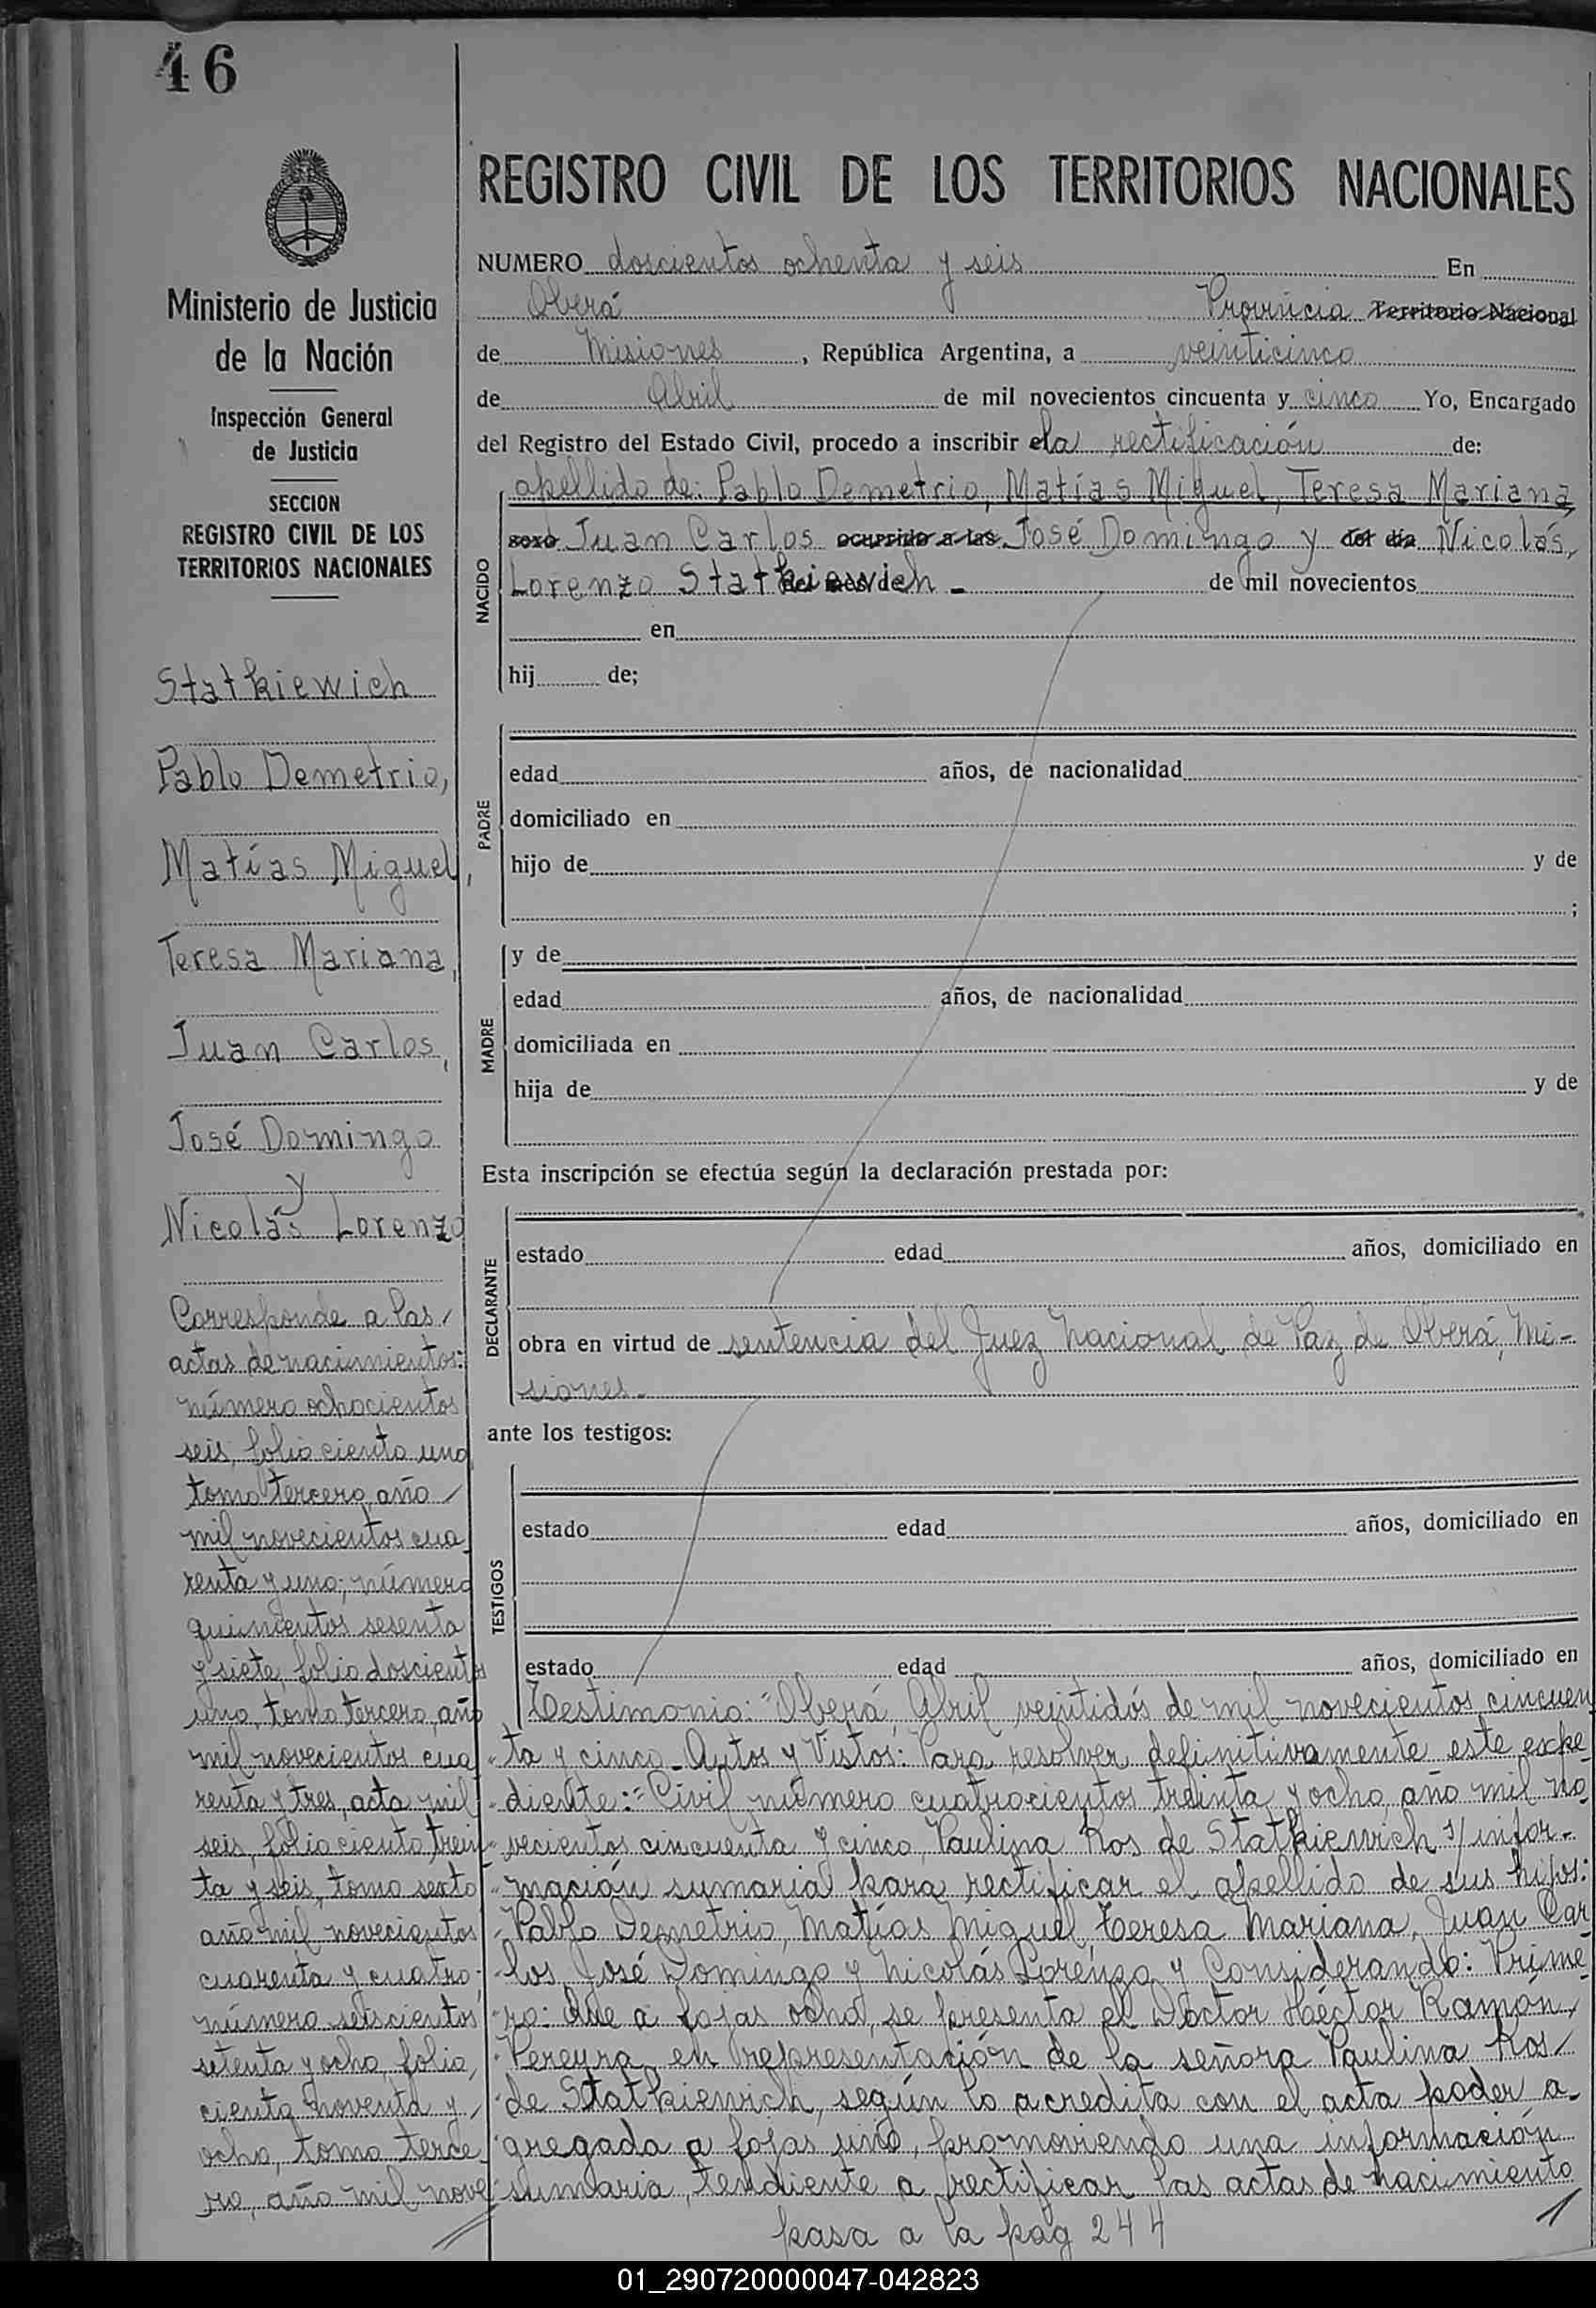 46
Ministerio de Justicia
de la Nación
Inspección General
de Justicia
SECCION
REGISTRO CIVIL DE LOS
TERRITORIOS NACIONALES
Statkiewich
Pablo Demetrio,
Matías Miguel,
Teresa Mariana,
Juan Carlos,
José Domingo
y
Nicolás Lorenzo
Corresponde a las
actas de nacimientos:
número ochocientos
seis, folio ciento uno
tomo tercero, año
mil novecientos cua
renta y uno; número
quinientos sesenta
y siete, folio doscientos
uno, tomo tercero, año
mil novecientos cua
renta y tres, acta mil
seis, folio ciento trein
ta y seis, tomo sexto
año mil novecientos
cuarenta y cuatro;
número seiscientos
setenta y ocho, folio,
ciento noventa y
ocho, tomo terce
ro, año mil nove
REGISTRO CIVIL DE LOS TERRITORIOS NACIONALES
NUMERO doscientos ochenta y seis En
Oberá Provincia Territorio Nacional
de Misiones, República Argentina, a veinticinco
de Abril de mil novecientos cincuenta y cinco Yo, Encargado
del Registro del Estado Civil, procedo a inscribir la rectificación de:
NACIDO
apellido de: Pablo Demetrio, Matías Miguel, Teresa Mariana,
sexo Juan Carlos ocurrido a las José Domingo y del día Nicolás,
Lorenzo Statkiewich - de mil novecientos
en
hij de;
PADRE
edad años, de nacionalidad
domiciliado en
hijo de y de
;
MADRE
y de
edad años, de nacionalidad
domiciliada en
hija de y de
Esta inscripción se efectúa según la declaración prestada por:
DECLARANTE
estado edad años, domiciliado en
obra en virtud de sentencia del Juez Nacional de Paz de Oberá, Mi-
siones.
ante los testigos:
TESTIGOS
estado edad años, domiciliado en
estado edad años, domiciliado en
Testimonio: "Oberá, Abril veintidós de mil novecientos cincuen
"ta y cinco. Autos y Vistos: Para resolver definitivamente este expe
"diente: "Civil número cuatrocientos treinta y ocho, año mil no
"vecientos cincuenta y cinco, Paulina Ros de Statkiewich s/ infor-
"mación sumaria para rectificar el apellido de sus hijos:
"Pablo Demetrio, Matías Miguel, Teresa Mariana, Juan Car
"los, José Domingo y Nicolás Lorenzo y Considerando: Prime
"ro: Que a fojas ocho, se presenta el Doctor Héctor Ramón
"Pereyra, en representación de la señora Paulina Ros
"de Statkiewich, según lo acredita con el acta poder a-
"gregada a fojas uno, promoviendo una información
"sumaria, tendiente a rectificar las actas de nacimiento
pasa a la pag 244
01_290720000047-042823